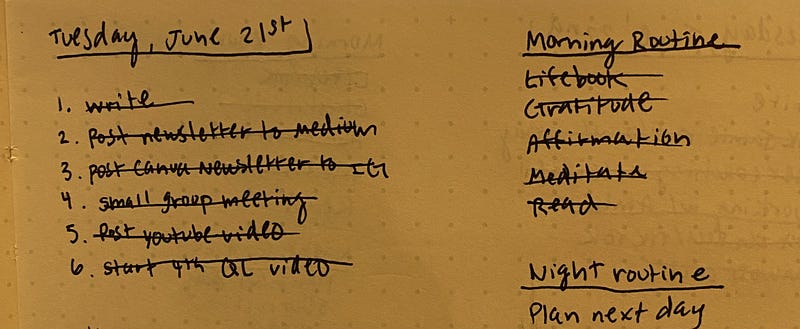 Tuesday, June 21st
1. write
2. Post newsletter to Medium
3. post Canva Newsletter to IG
4. small group meeting
5. Post youtube video
6. start 4th QL video
Morning Routine
Lifebook
Gratitude
Affirmation
Meditate
Read
Night routine
Plan next day